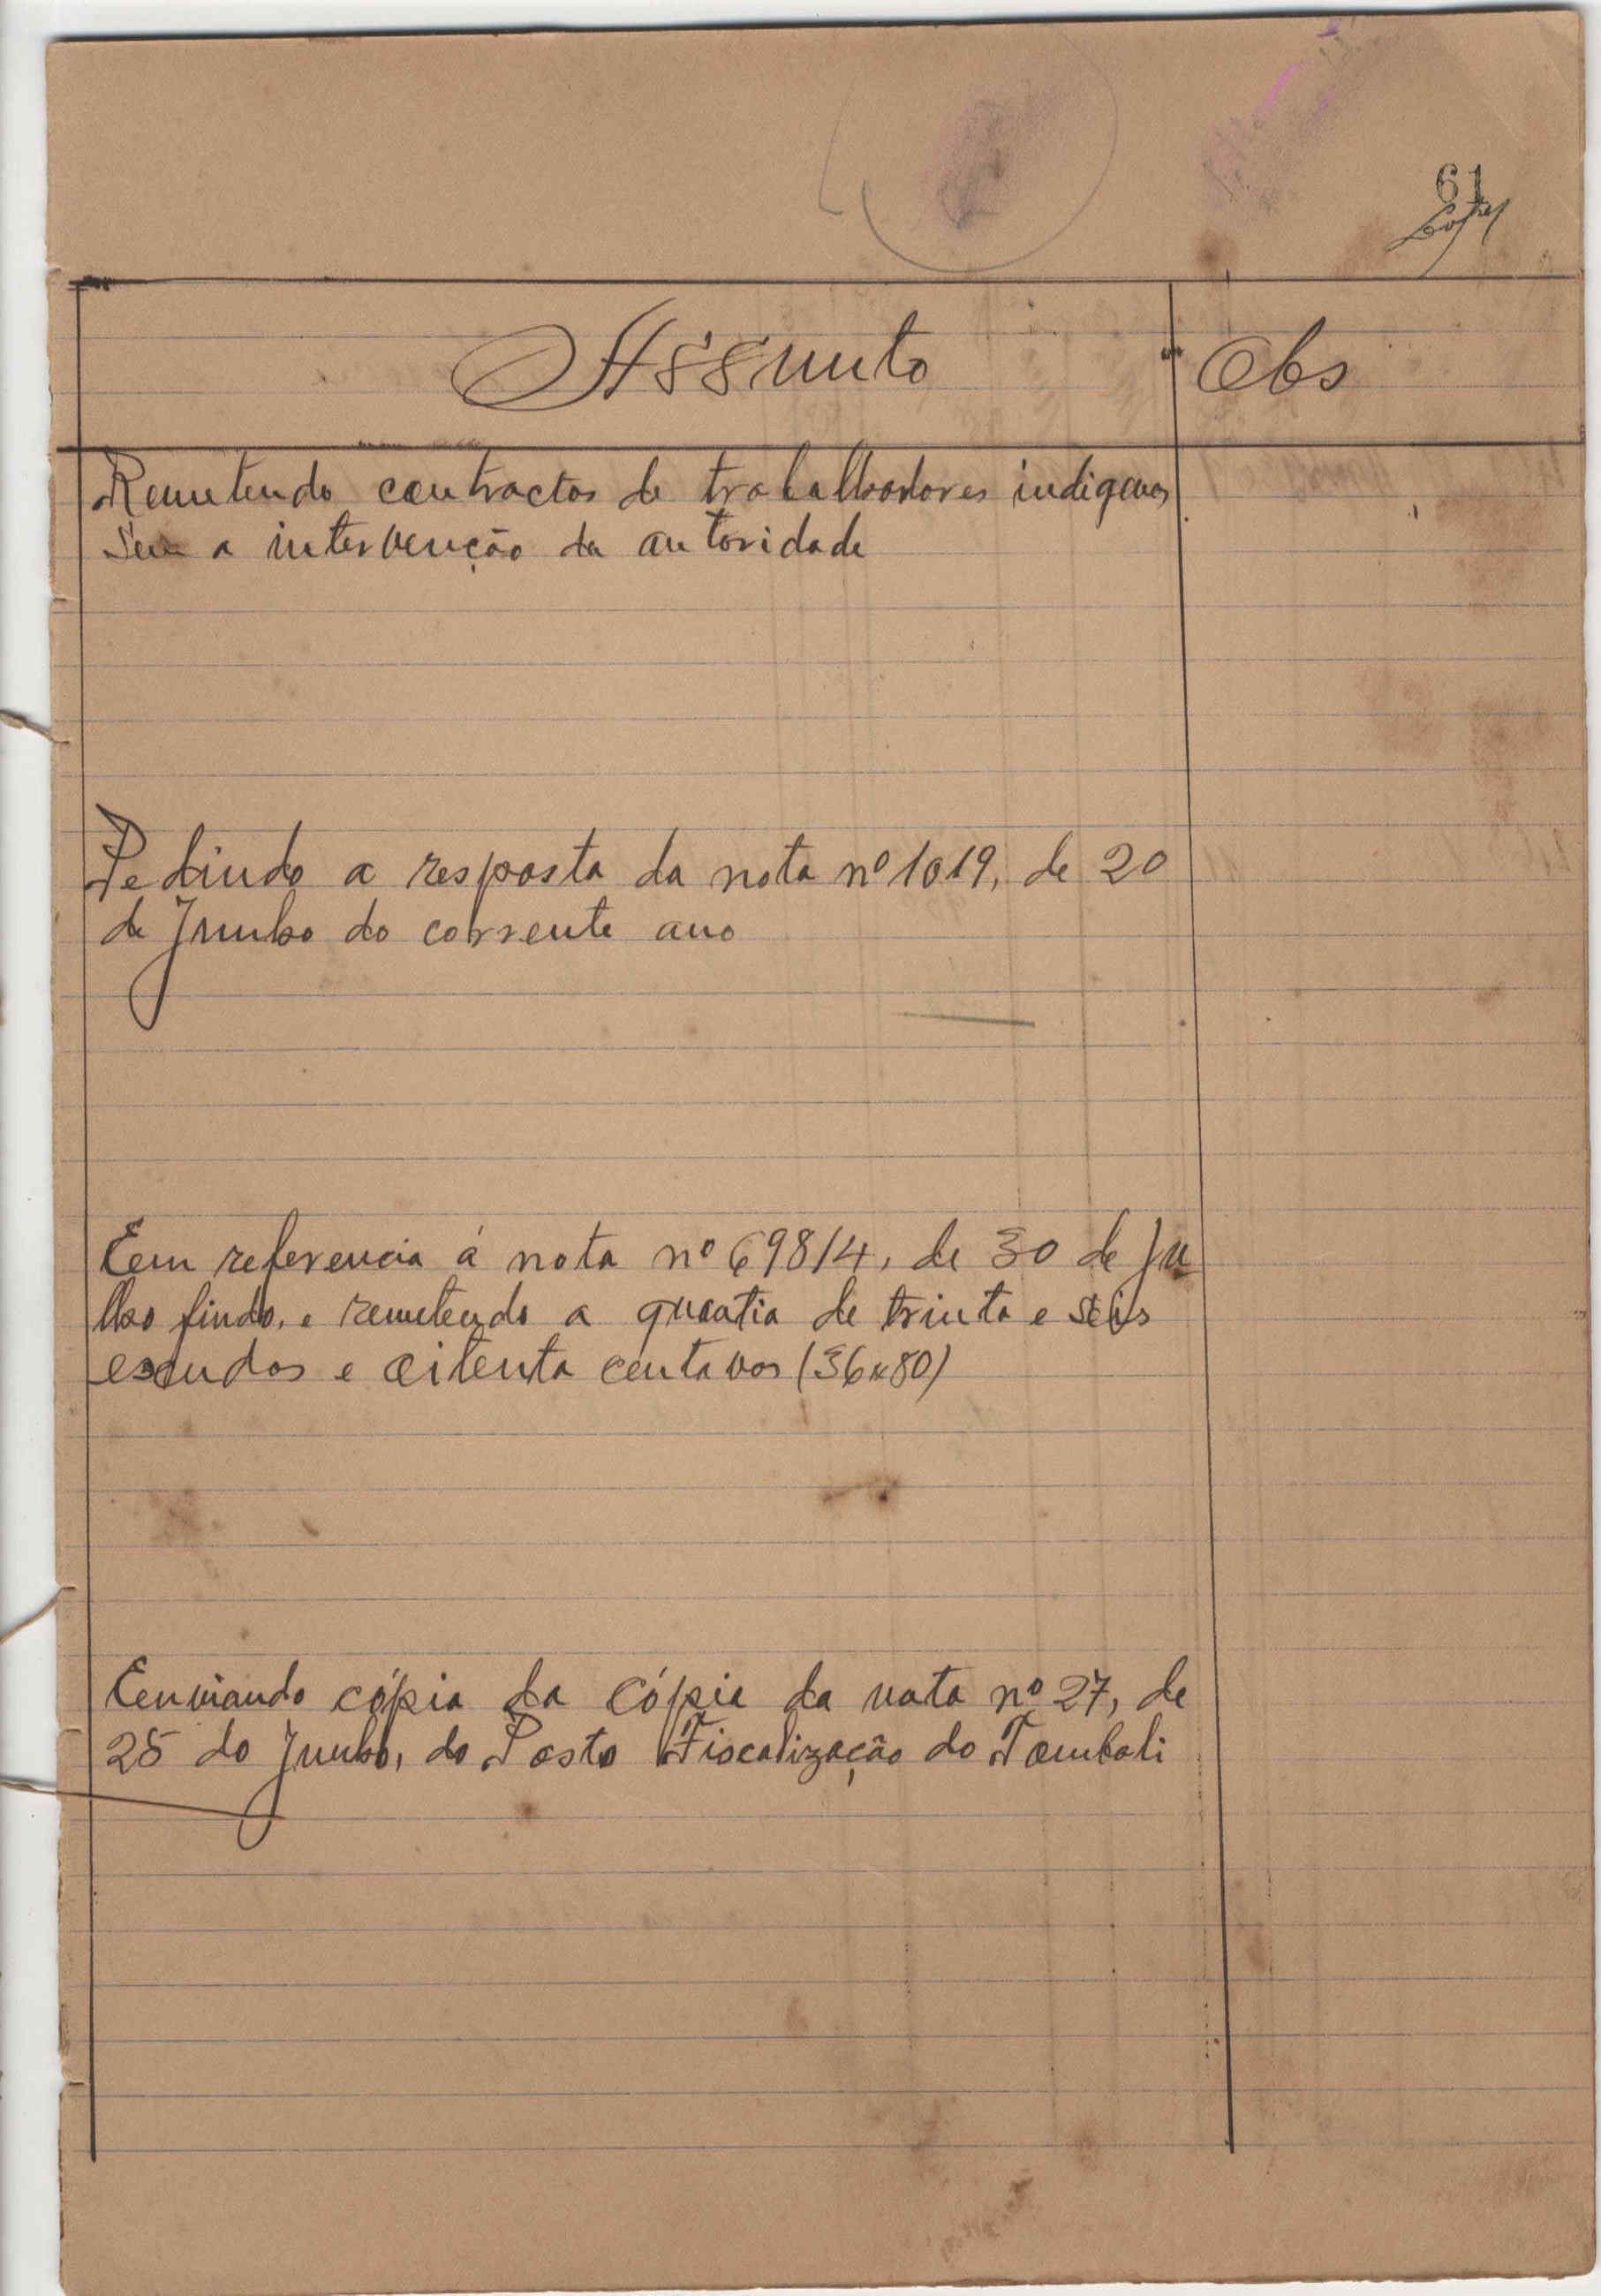 61
Assunto
Obs
Remetendo contractos de trabalhadores indigenas
sem a intervenção da autoridade
Pedindo a resposta da nota nº 1019, de 20
de Junho do corrente ano
Em referencia á nota nº 698/4, de 30 de Ju
lho findo, e remetendo a quantia de trinta e seis
escudos e oitenta centavos (36$80)
Enviando cópia da cópia da nota nº 27, de
25 do Junho, do Posto Fiscalização do Tombali